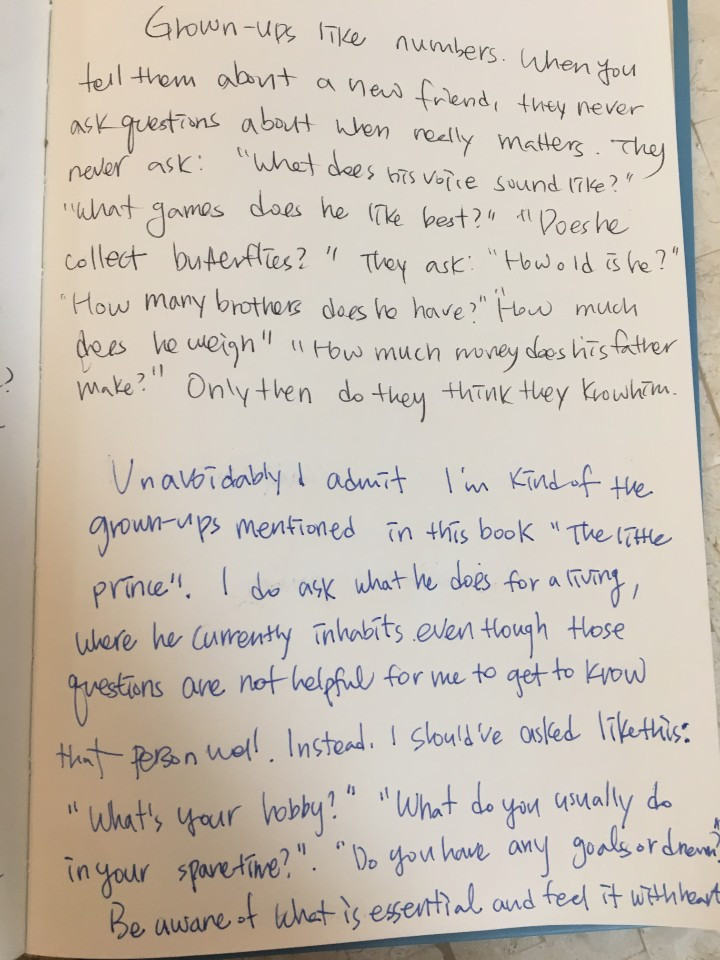 Grown-ups like numbers. When you
tell them about a new friend, they never
ask questions about when really matters. They
never ask: "What does his voice sound like?"
"What games does he like best?" "Does he
collect butterflies?" They ask: "How old is he?"
"How many brothers does he have?" "How much
does he weigh" "How much money does his father
make?" Only then do they think they know him.
Unavoidably I admit I'm kind of the
grown-ups mentioned in this book "The little
prince". I do ask what he does for a living,
where he currently inhabits even though those
questions are not helpful for me to get to know
that person well. Instead. I should've asked like this:
"What's your hobby?" "What do you usually do
in your spare time?". "Do you have any goals or dream?
Be aware of what is essential and feel it with heart
?